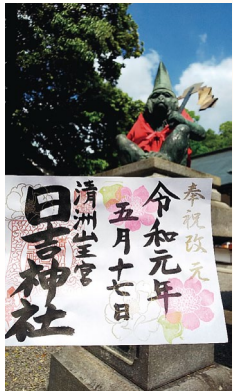 奉祝改元
令和元年
五月十七日
清洲山王宮
日吉神社